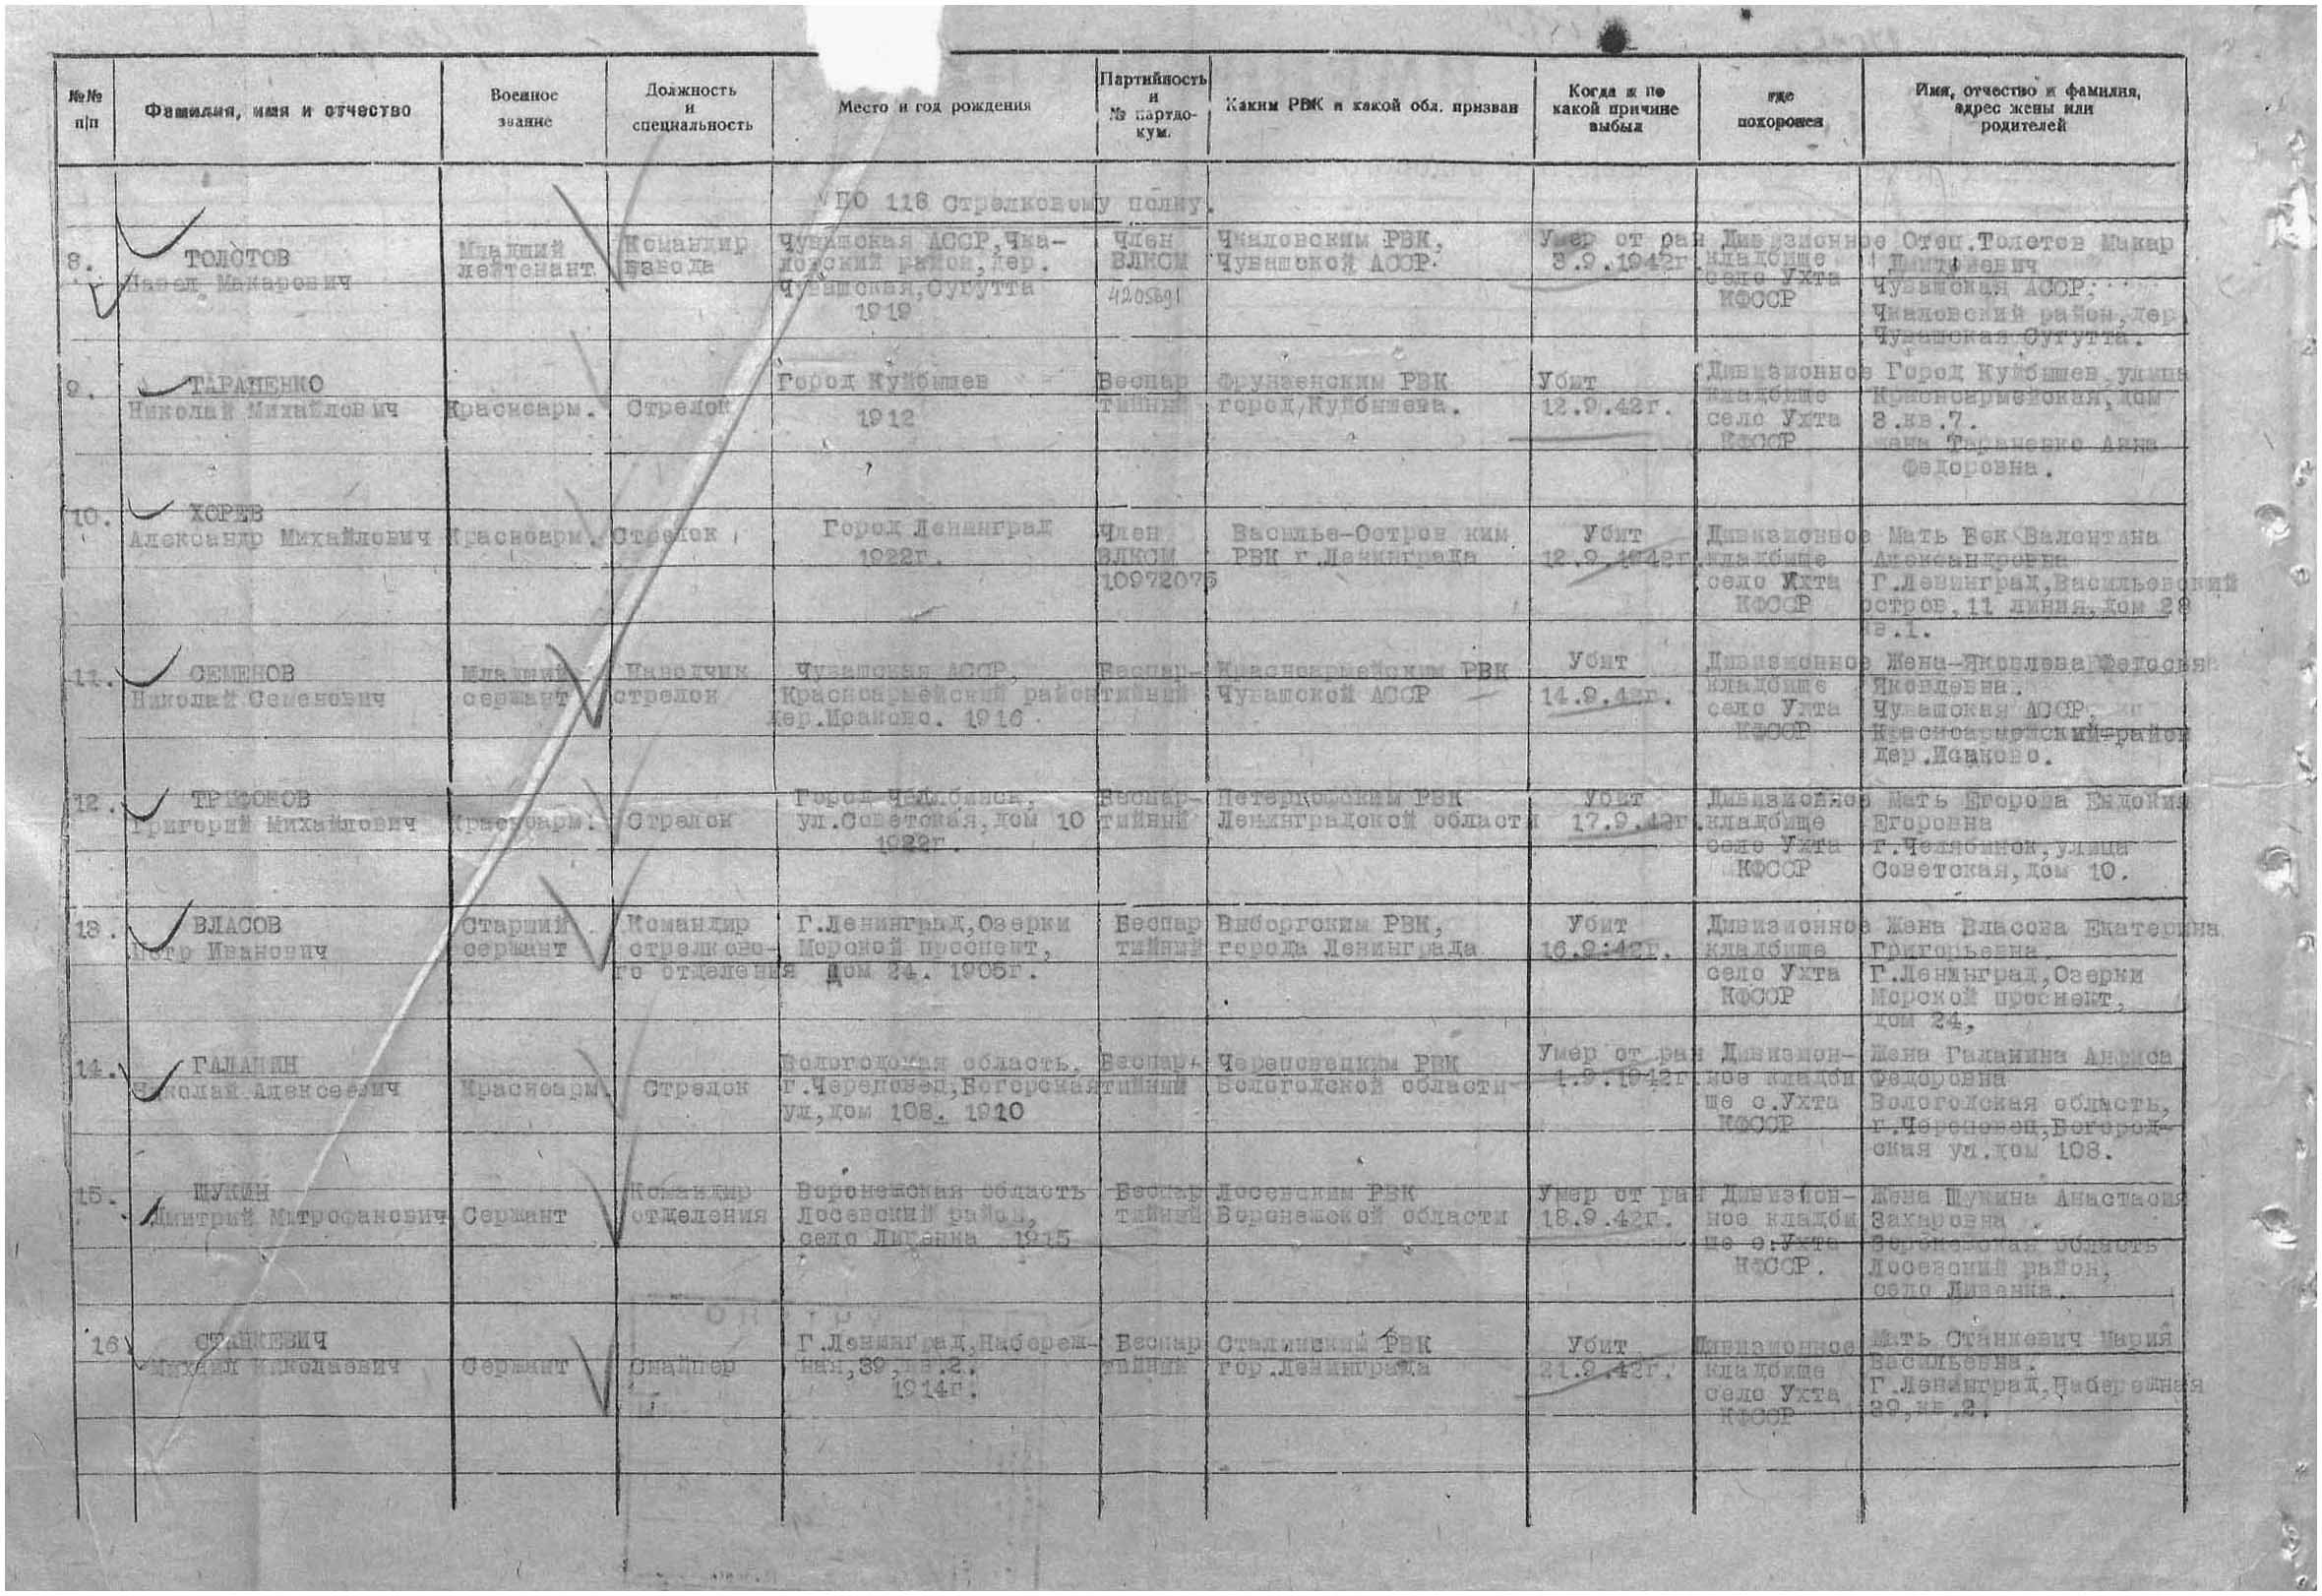 №№ п|п
Фамилия, имя и отчество
Военное звание
Должность и специальность
Место и год рождения
Партийность и № партдокум.
Каким РВК и какой обл. призван
Когда и по какой причине выбыл
где похоронен
Имя, отчество и фамилия, адрес жены или родителей
ПО 118 Стрелковому полку.
8.
ТОЛСТОВ
Павел Макарович
Младший
лейтенант
Командир
взвода
Чувашская АССР, Чка-
ловский район, дер.
Чувашская, Сугутта
1919
Член
ВЛКСМ
4205691
Чкаловским РВК,
Чувашской АССР.
Умер от ран
3.9.1942г.
Дивизионное
кладбище
село Ухта
КФССР
Отец. Толстов Макар
Дмитриевич
Чувашская АССР,
Чкаловский район, дер
Чувашская Сугутта.
9.
ТАРАНЕНКО
Николай Михайлович
Красноарм.
Стрелок
Город Куйбышев
1912
Беспар
тийный
Фрунзенским РВК
город, Куйбышева.
Убит
12.9.42г.
Дивизионное
кладбище
село Ухта
КФССР
Город Куйбышев, улица
Красноармейская, дом
3.кв.7.
жена Тараненко Анна
Федоровна.
10.
ХОРЕВ
Александр Михайлович
Красноарм.
Стрелок
Город Ленинград
1922г.
Член
ВЛКСМ
10972075
Василье-Остров ким
РВК г.Ленинграда
Убит
12.9.1942г.
Дивизионное
кладбище
село Ухта
КФССР
Мать Бек Валентина
Александровна
Г.Ленинград, Васильевский
остров, 11 линия, дом 28
кв.1.
11.
СЕМЕНОВ
Николай Семенович
Младший
сержант
Наводчик
стрелок
Чувашская АССР,
Красноармейский район
дер.Исаково. 1916
Беспар-
тийный
Красноармейским РВК
Чувашской АССР
Убит
14.9.42г.
Дивизионное
кладбище
село Ухта
КФССР
Жена-Яковлева Федосья
Яковлевна.
Чувашская АССР,
Красноармейский район
дер.Исаково.
12.
ТРИФОНОВ
Григорий Михайлович
Красноарм.
Стрелок
Город Челябинск,
ул.Советская, дом 10
1922г.
Беспар-
тийный
Петергофским РВК
Ленинградской области
Убит
17.9.42г.
Дивизионное
кладбище
село Ухта
КФССР
Мать Егорова Евдокия
Егоровна
г.Челябинск, улица
Советская, дом 10.
13.
ВЛАСОВ
Петр Иванович
Старший
сержант
Командир
стрелково-
го отделения
Г.Ленинград, Озерки
Морской проспект,
Дом 24. 1905г.
Беспар
тийный
Выборгским РВК,
города Ленинграда
Убит
16.9.42г.
Дивизионное
кладбище
село Ухта
КФССР
Жена Власова Екатерина
Григорьевна.
Г.Ленинград, Озерки
Морской проспект,
дом 24,
14.
ГАЛАНИН
Николай Алексеевич
Красноарм.
Стрелок
Вологодская область,
г.Череповец, Богорская
ул, дом 108. 1910
Беспар-
тийный
Череповецким РВК
Вологодской области
Умер от ран
1.9.1942г.
Дивизион-
ное кладби
ще с.Ухта
КФССР
Жена Галанина Анфиса
Федоровна
Вологодская область,
г.Череповец, Богород-
ская ул.дом 108.
15.
ЩУКИН
Дмитрий Митрофанович
Сержант
Командир
отделения
Воронежская область
Лосевский район,
село Ливенка 1915
Беспар
тийный
Лосевским РВК
Воронежской области
Умер от ран
18.9.42г.
Дивизион-
ное кладби
ще с.Ухта
КФССР.
Жена Щукина Анастасия
Захаровна
Воронежская область
Лосевский район,
село Ливенка.
16
СТАНКЕВИЧ
Михаил Николаевич
Сержант
Снайпер
Г.Ленинград, Набереж-
ная, 39, кв.2.
1914г.
Беспар
тийный
Сталинский РВК
гор.Ленинграда
Убит
21.9.42г.
Дивизионное
кладбище
село Ухта
КФССР
Мать Станкевич Мария
Васильевна.
Г.Ленинград, Набережная
39, кв.2.